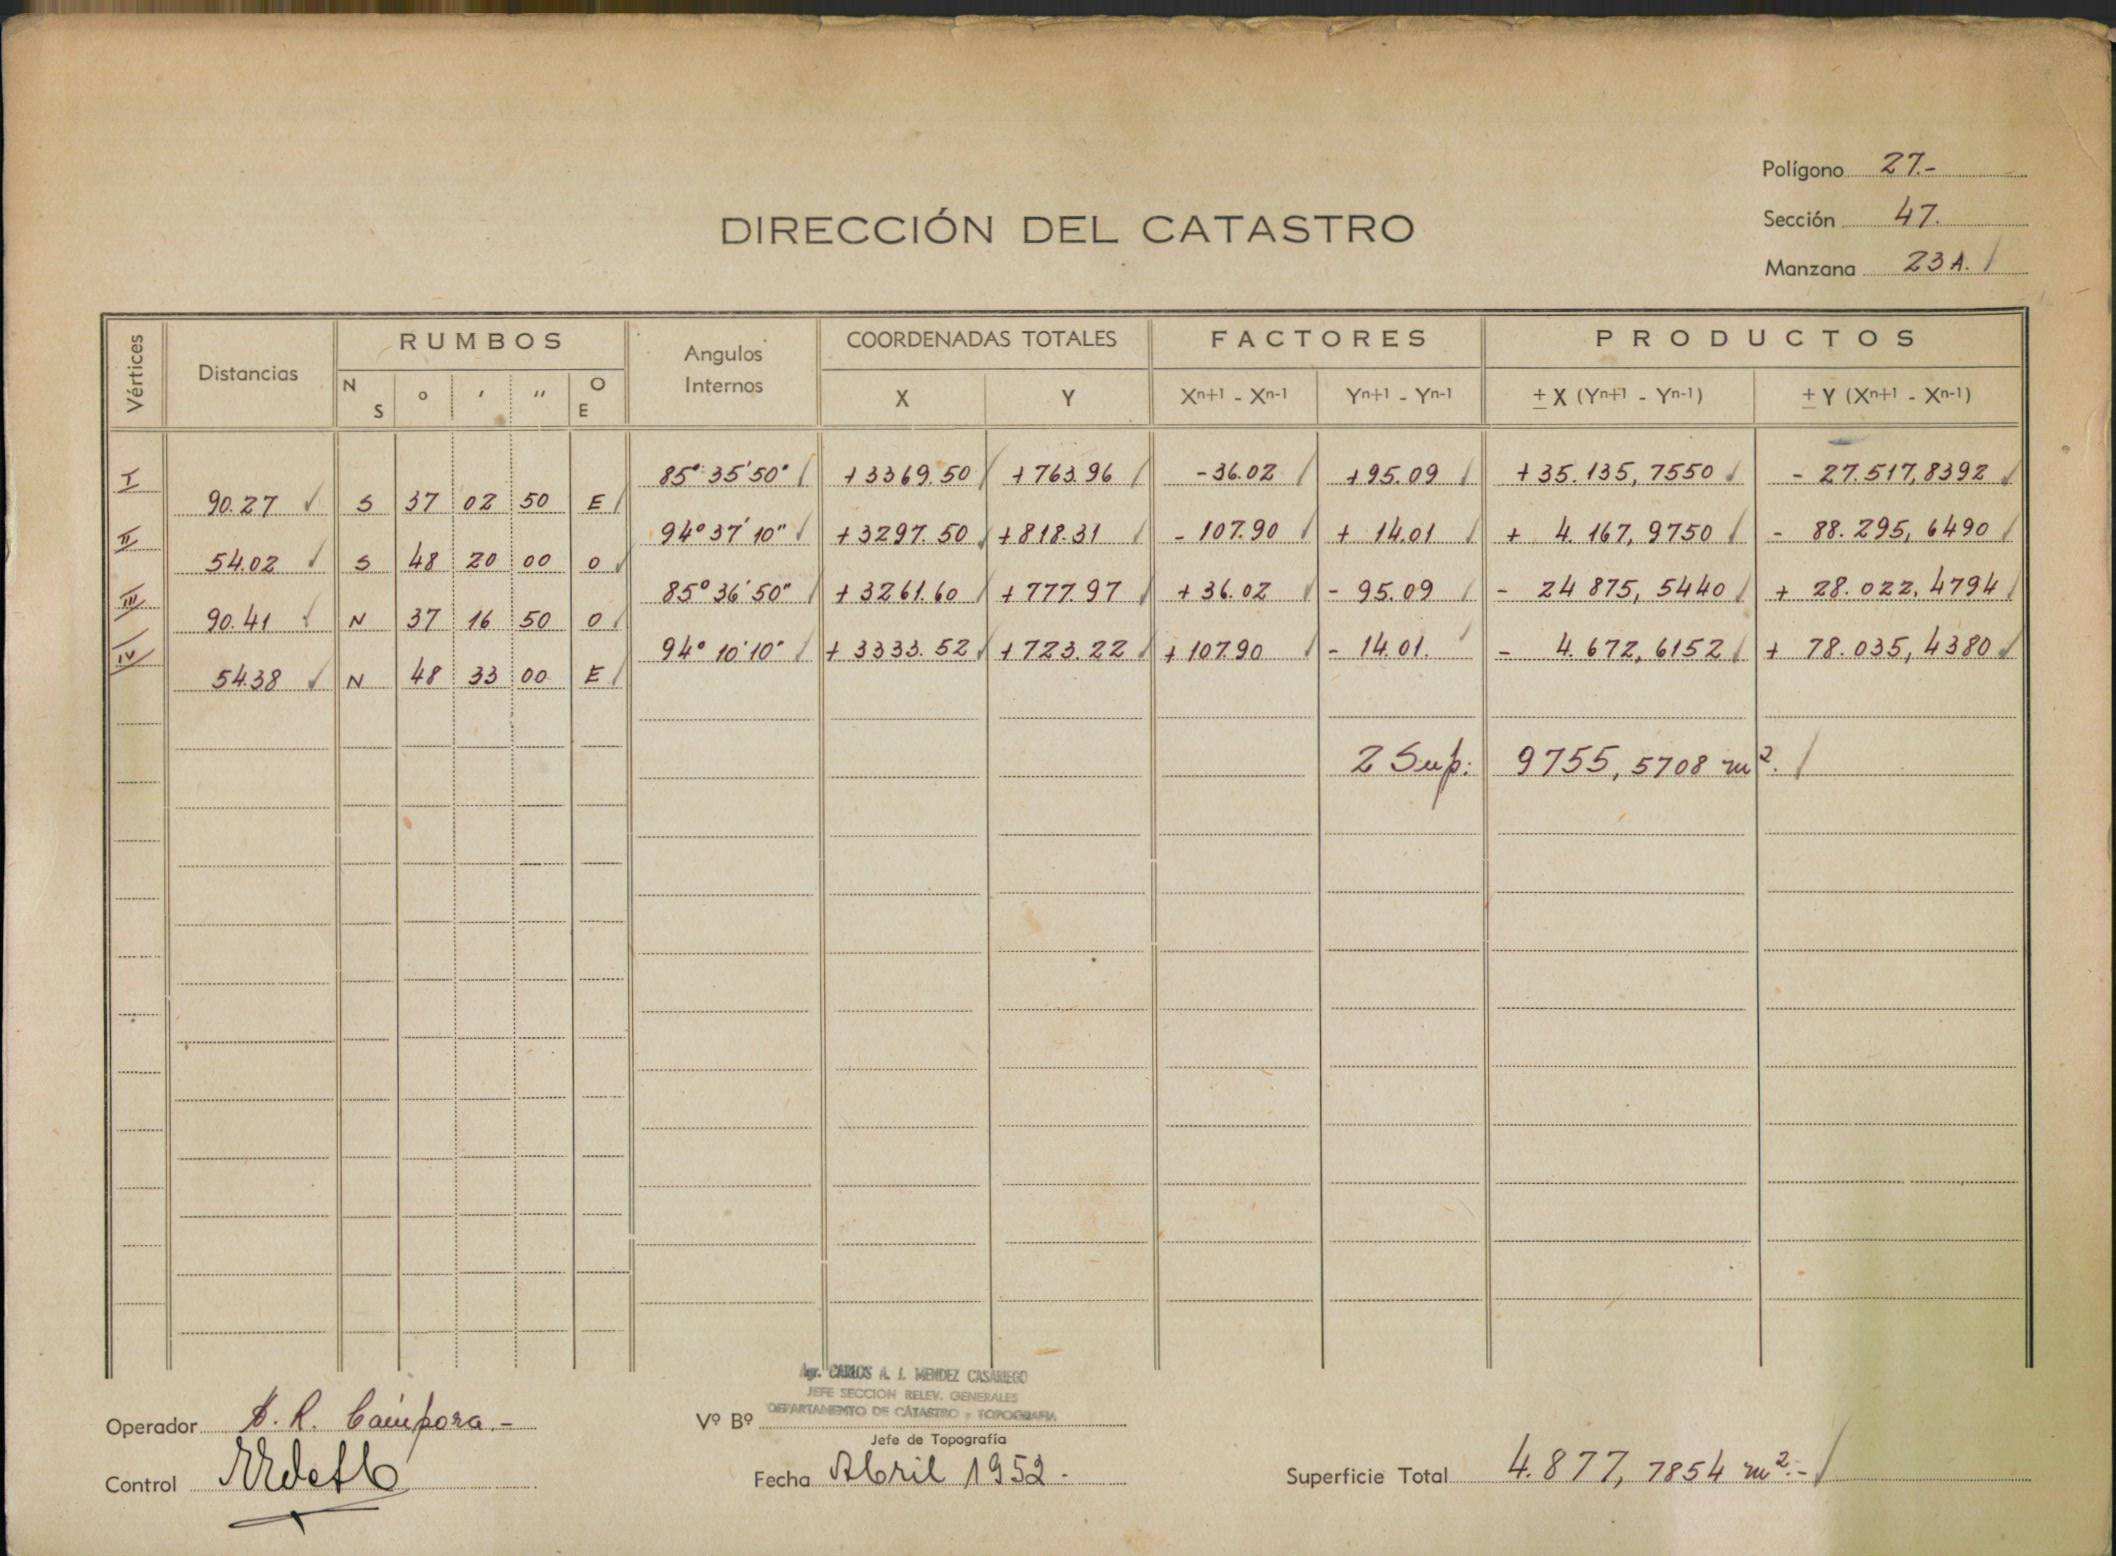 Polígono 27.-
Sección 47.
Manzana 23A.
DIRECCIÓN DEL CATASTRO
Vértices Distancias RUMBOS Angulos Internos COORDENADAS TOTALES FACTORES PRODUCTOS
N S ° ′ ″ O E X Y Xn+1 - Xn-1 Yn+1 - Yn-1 ± X (Yn+1 - Yn-1) ± Y (Xn+1 - Xn-1)
I 85° 35' 50" +3369.50 +763.96 -36.02 +95.09 +35.135,7550 - 27.517,8392
90.27 S 37 02 50 E
II 94° 37' 10" +3297.50 +818.31 - 107.90 + 14.01 + 4.167,9750 - 88.295,6490
54.02 S 48 20 00 O
III 85° 36' 50" +3261.60 +777.97 +36.02 - 95.09 - 24 875,5440 + 28.022,4794
90.41 N 37 16 50 O
IV 94° 10' 10" +3333.52 +723.22 +107.90 - 14.01. - 4.672,6152 + 78.035,4380
54.38 N 48 33 00 E
2 Sup: 9755,5708 m².
Agr. CARLOS A. J. MENDEZ CASARIEGO
JEFE SECCION RELEV. GENERALES
DEPARTAMENTO DE CATASTRO y TOPOGRAFIA
Operador R. Cámpora.-
Vº Bº
Jefe de Topografía
Control
Fecha Abril 1952.
Superficie Total 4.877,7854 m².-